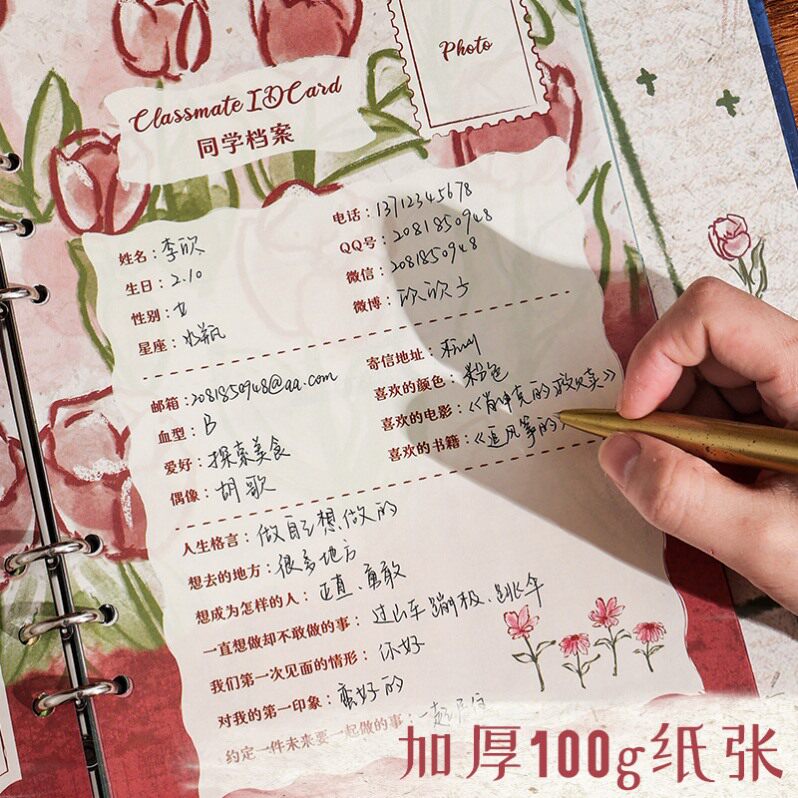 Photo
Classmate ID Card
同学档案
姓名：李欣
生日：2.10
性别：女
星座：水瓶
电话：13712345678
QQ号：2081850948
微信：2081850948
微博：欣欣子
邮箱：2081850948@qq.com
血型：B
爱好：探索美食
偶像：胡歌
寄信地址：
喜欢的颜色：粉色
喜欢的电影：《肖申克的救赎》
喜欢的书籍：《追风筝的
人生格言：做自己想做的
想去的地方：很多地方
想成为怎样的人：正直、勇敢
一直想做却不敢做的事：过山车 蹦极、跳伞
我们第一次见面的情形：你好
对我的第一印象：蛮好的
约定一件未来要一起做的事：一起
加厚100g纸张